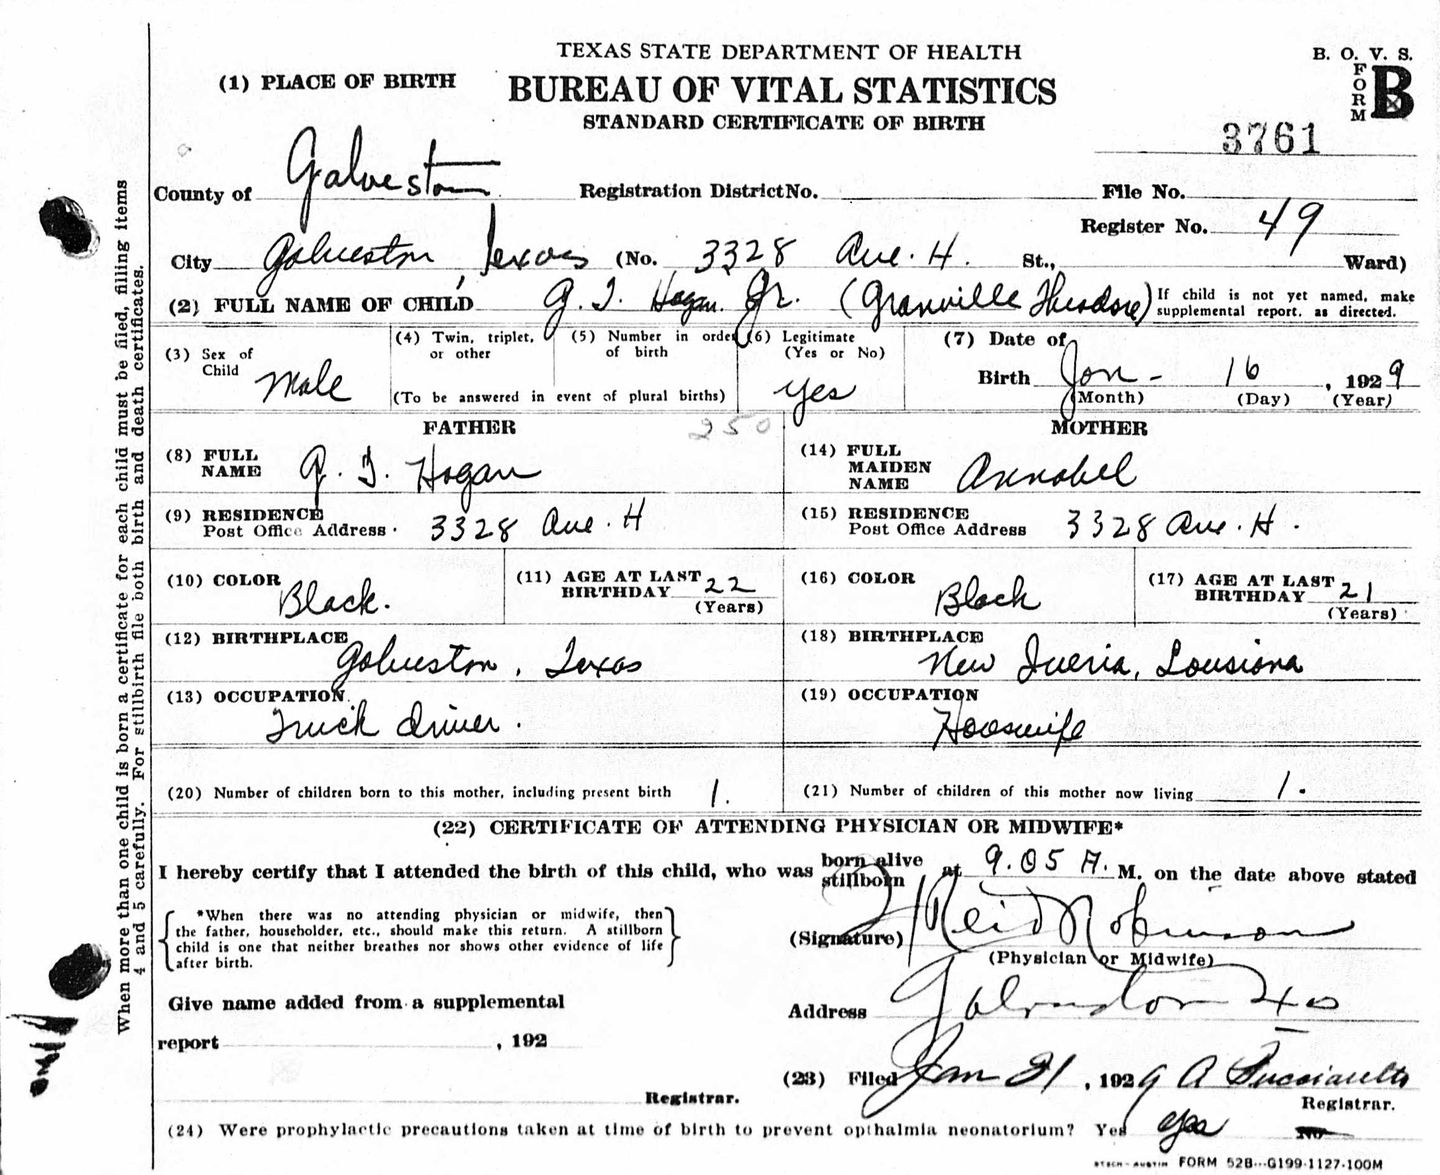 TEXAS STATE DEPARTMENT OF HEALTH
B. O. V. S.
FORM B
(1) PLACE OF BIRTH
BUREAU OF VITAL STATISTICS
STANDARD CERTIFICATE OF BIRTH
3761
County of Galveston Registration District No. File No.
Register No. 49
City Galveston, Texas (No. 3328 Ave. H. St., Ward)
(2) FULL NAME OF CHILD G. T. Hogan Jr. (Granville Theodore) If child is not yet named, make supplemental report, as directed.
(3) Sex of Child Male
(4) Twin, triplet, or other
(5) Number in order of birth
(To be answered in event of plural births)
(6) Legitimate (Yes or No) yes
(7) Date of Birth Jan - 16, 1929
(Month) (Day) (Year)
FATHER 250
MOTHER
(8) FULL NAME G. T. Hogan
(14) FULL MAIDEN NAME Annabel
(9) RESIDENCE Post Office Address 3328 Ave. H
(15) RESIDENCE Post Office Address 3328 Ave. H.
(10) COLOR Black.
(11) AGE AT LAST BIRTHDAY 22 (Years)
(16) COLOR Black
(17) AGE AT LAST BIRTHDAY 21 (Years)
(12) BIRTHPLACE Galveston, Texas
(18) BIRTHPLACE New Iveria, Lousiana
(13) OCCUPATION Truck driver.
(19) OCCUPATION Hooswife
(20) Number of children born to this mother, including present birth 1.
(21) Number of children of this mother now living 1.
(22) CERTIFICATE OF ATTENDING PHYSICIAN OR MIDWIFE*
I hereby certify that I attended the birth of this child, who was born alive stillborn at 9.05 A. M. on the date above stated
*When there was no attending physician or midwife, then
the father, householder, etc., should make this return. A stillborn
child is one that neither breathes nor shows other evidence of life
after birth.
(Signature) Reid Robinson
(Physician or Midwife)
Give name added from a supplemental
Address Galveston
report , 192
(23) Filed Jan 21, 1929 A
Registrar.
Registrar.
(24) Were prophylactic precautions taken at time of birth to prevent opthalmia neonatorium? Yes yes No
FORM 52B---G199-1127-100M
When more than one child is born a certificate for each child must be filed, filling items
4 and 5 carefully. For stillbirth file both birth and death certificates.